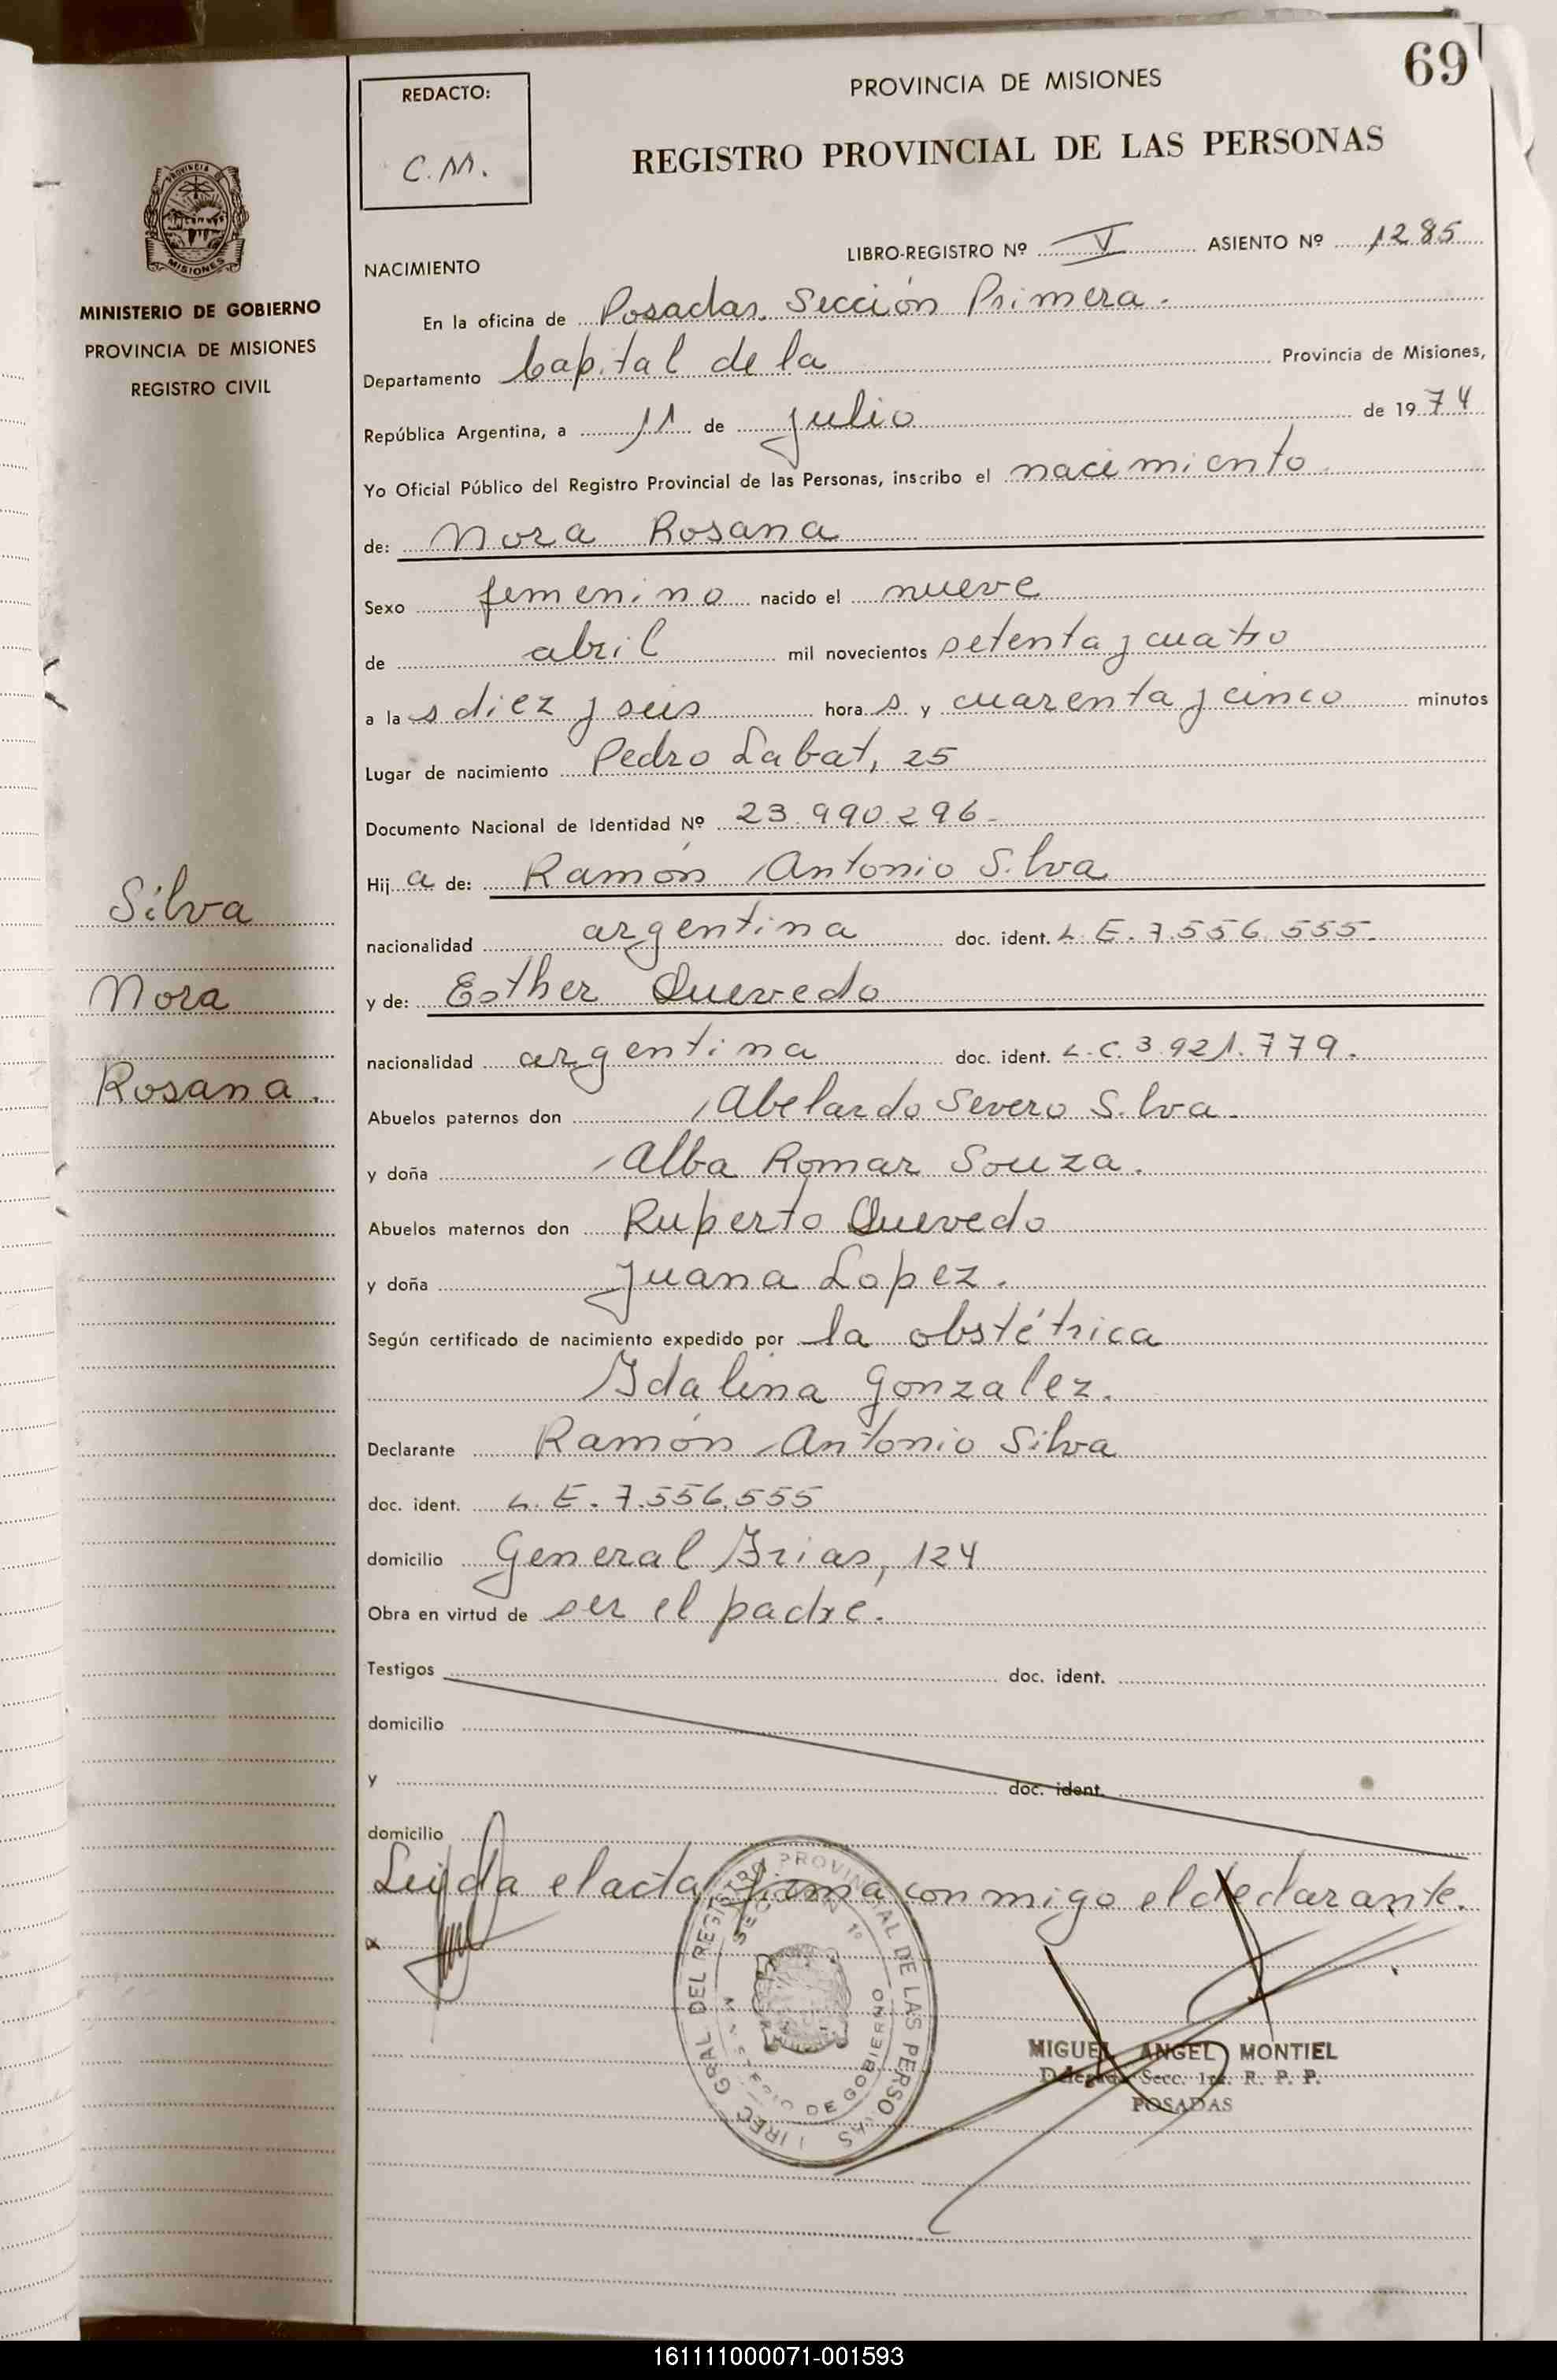 69
REDACTO:
C.M.
PROVINCIA DE MISIONES
REGISTRO PROVINCIAL DE LAS PERSONAS
LIBRO-REGISTRO Nº V ASIENTO Nº 1285
NACIMIENTO
En la oficina de Posadas Sección Primera.
Departamento Capital de la Provincia de Misiones,
República Argentina, a 11 de julio de 1974
Yo Oficial Público del Registro Provincial de las Personas, inscribo el nacimiento
de: Nora Rosana
Sexo femenino nacido el nueve
de abril mil novecientos setenta y cuatro
a las diez y seis horas y cuarenta y cinco minutos
Lugar de nacimiento Pedro Labat, 25
Documento Nacional de Identidad Nº 23.990.296-
Hija de: Ramón Antonio Silva
nacionalidad argentina doc. ident. L.E. 7.556.555.
y de: Esther Quevedo
nacionalidad argentina doc. ident. L.C. 3.921.779.
Abuelos paternos don Abelardo Severo Silva.
y doña Alba Romar Souza.
Abuelos maternos don Ruperto Quevedo
y doña Juana Lopez.
Según certificado de nacimiento expedido por la obstétrica
Idalina Gonzalez.
Declarante Ramón Antonio Silva
doc. ident. L.E. 7.556.555
domicilio General Frias, 124
Obra en virtud de ser el padre.
Testigos doc. ident.
domicilio
y doc. ident.
domicilio
Leída el acta, firma conmigo el declarante.
x
DIREC. GRAL. DEL REGISTRO PROVINCIAL DE LAS PERSONAS
SECCION 1º
MINISTERIO DE GOBIERNO
MIGUEL ANGEL MONTIEL
Delegado Secc. 1ra. R. P. P.
POSADAS
PROVINCIA DE
MISIONES
MINISTERIO DE GOBIERNO
PROVINCIA DE MISIONES
REGISTRO CIVIL
Silva
Nora
Rosana.
161111000071-001593